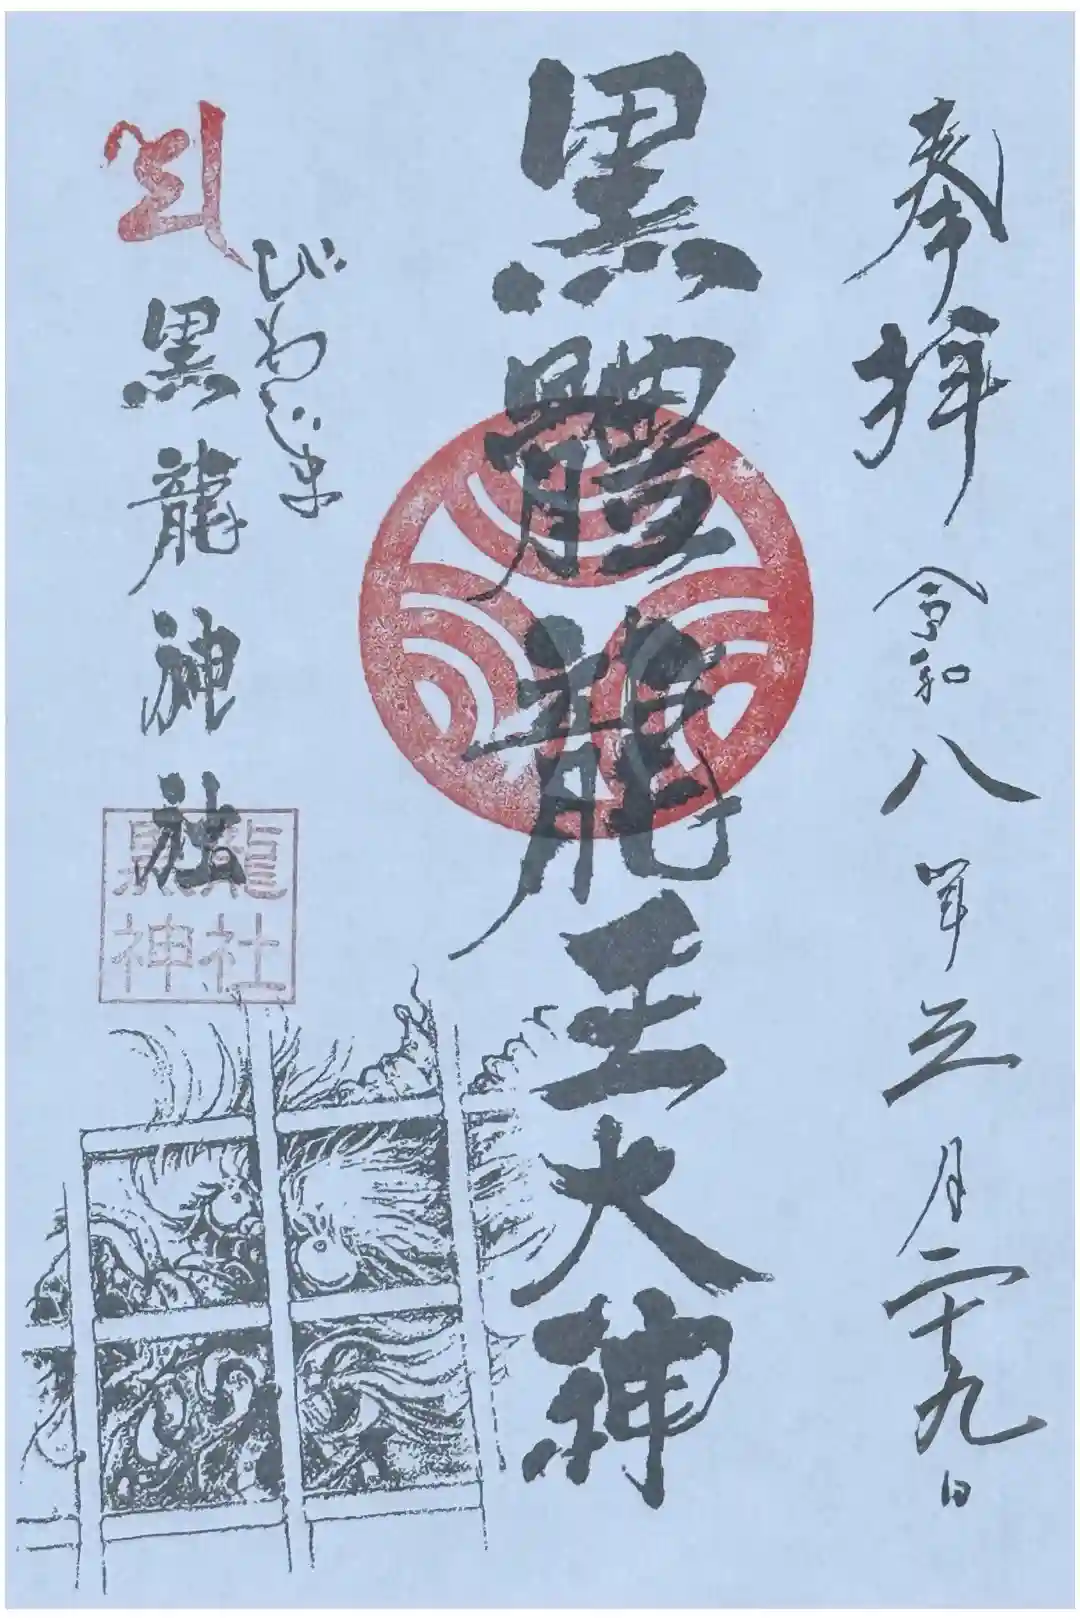 奉拝 令和八年三月二十九日
黒體龍王大神
びわじま
黒龍神社
黒龍
神社